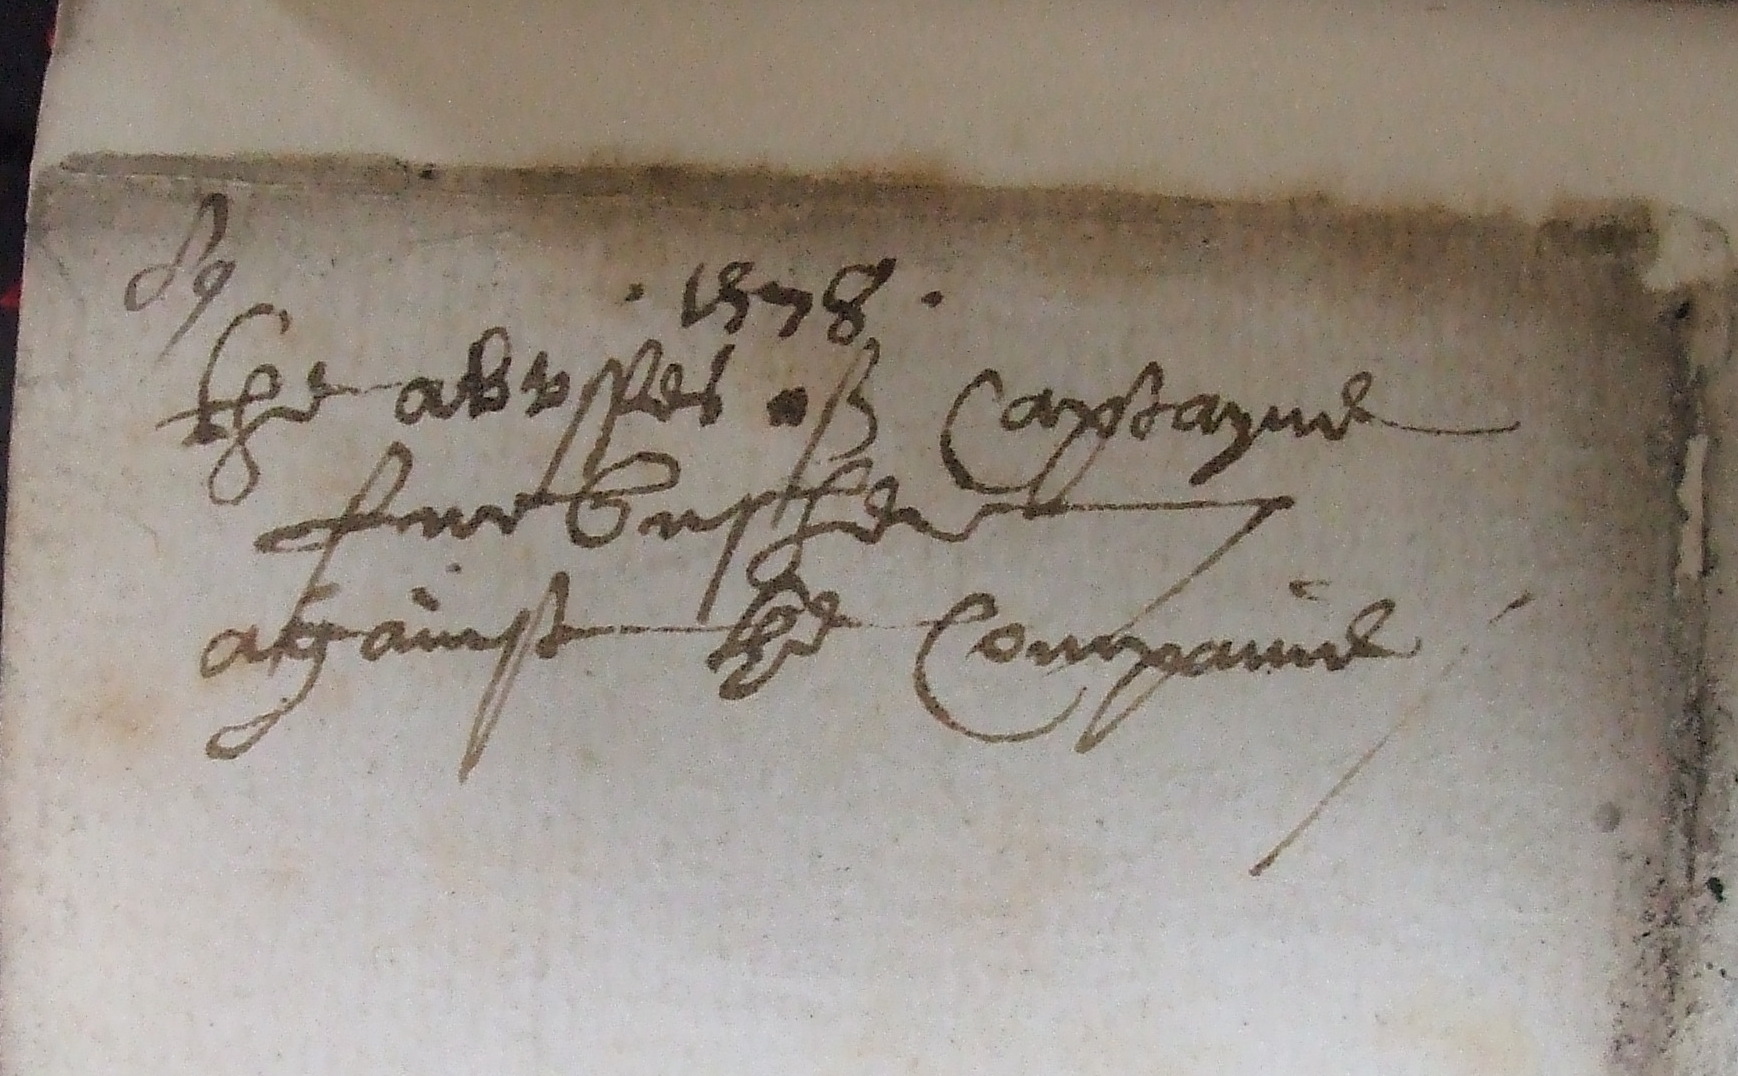 . 1578 .
The abvsses of Captayne
furbusher
against the Companie